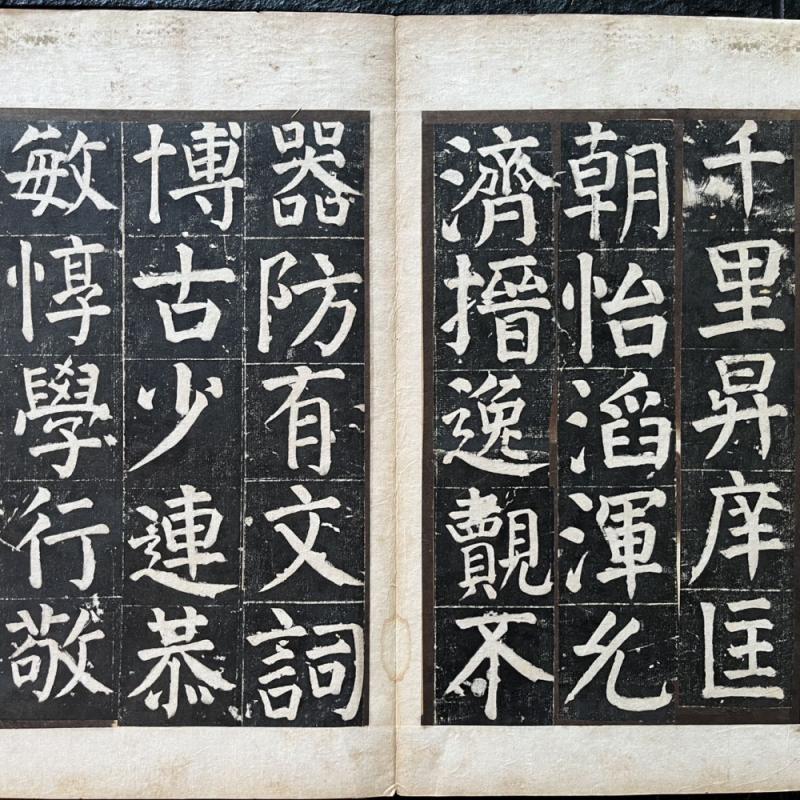 千里昇庠匡
朝怡滔渾允
濟搢逸覿不
器防有文詞
博古少連恭
敏惇學行敬